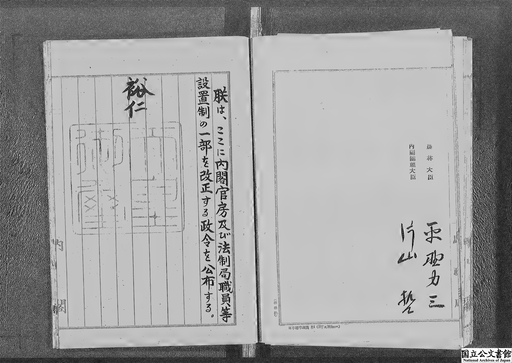 農林大臣
平野力三
内閣総理大臣
片山哲
朕は、ここに内閣官房及び法制局職員等
設置制の一部を改正する政令を公布する。
裕仁
内閣
国立公文書館
National Archives of Japan